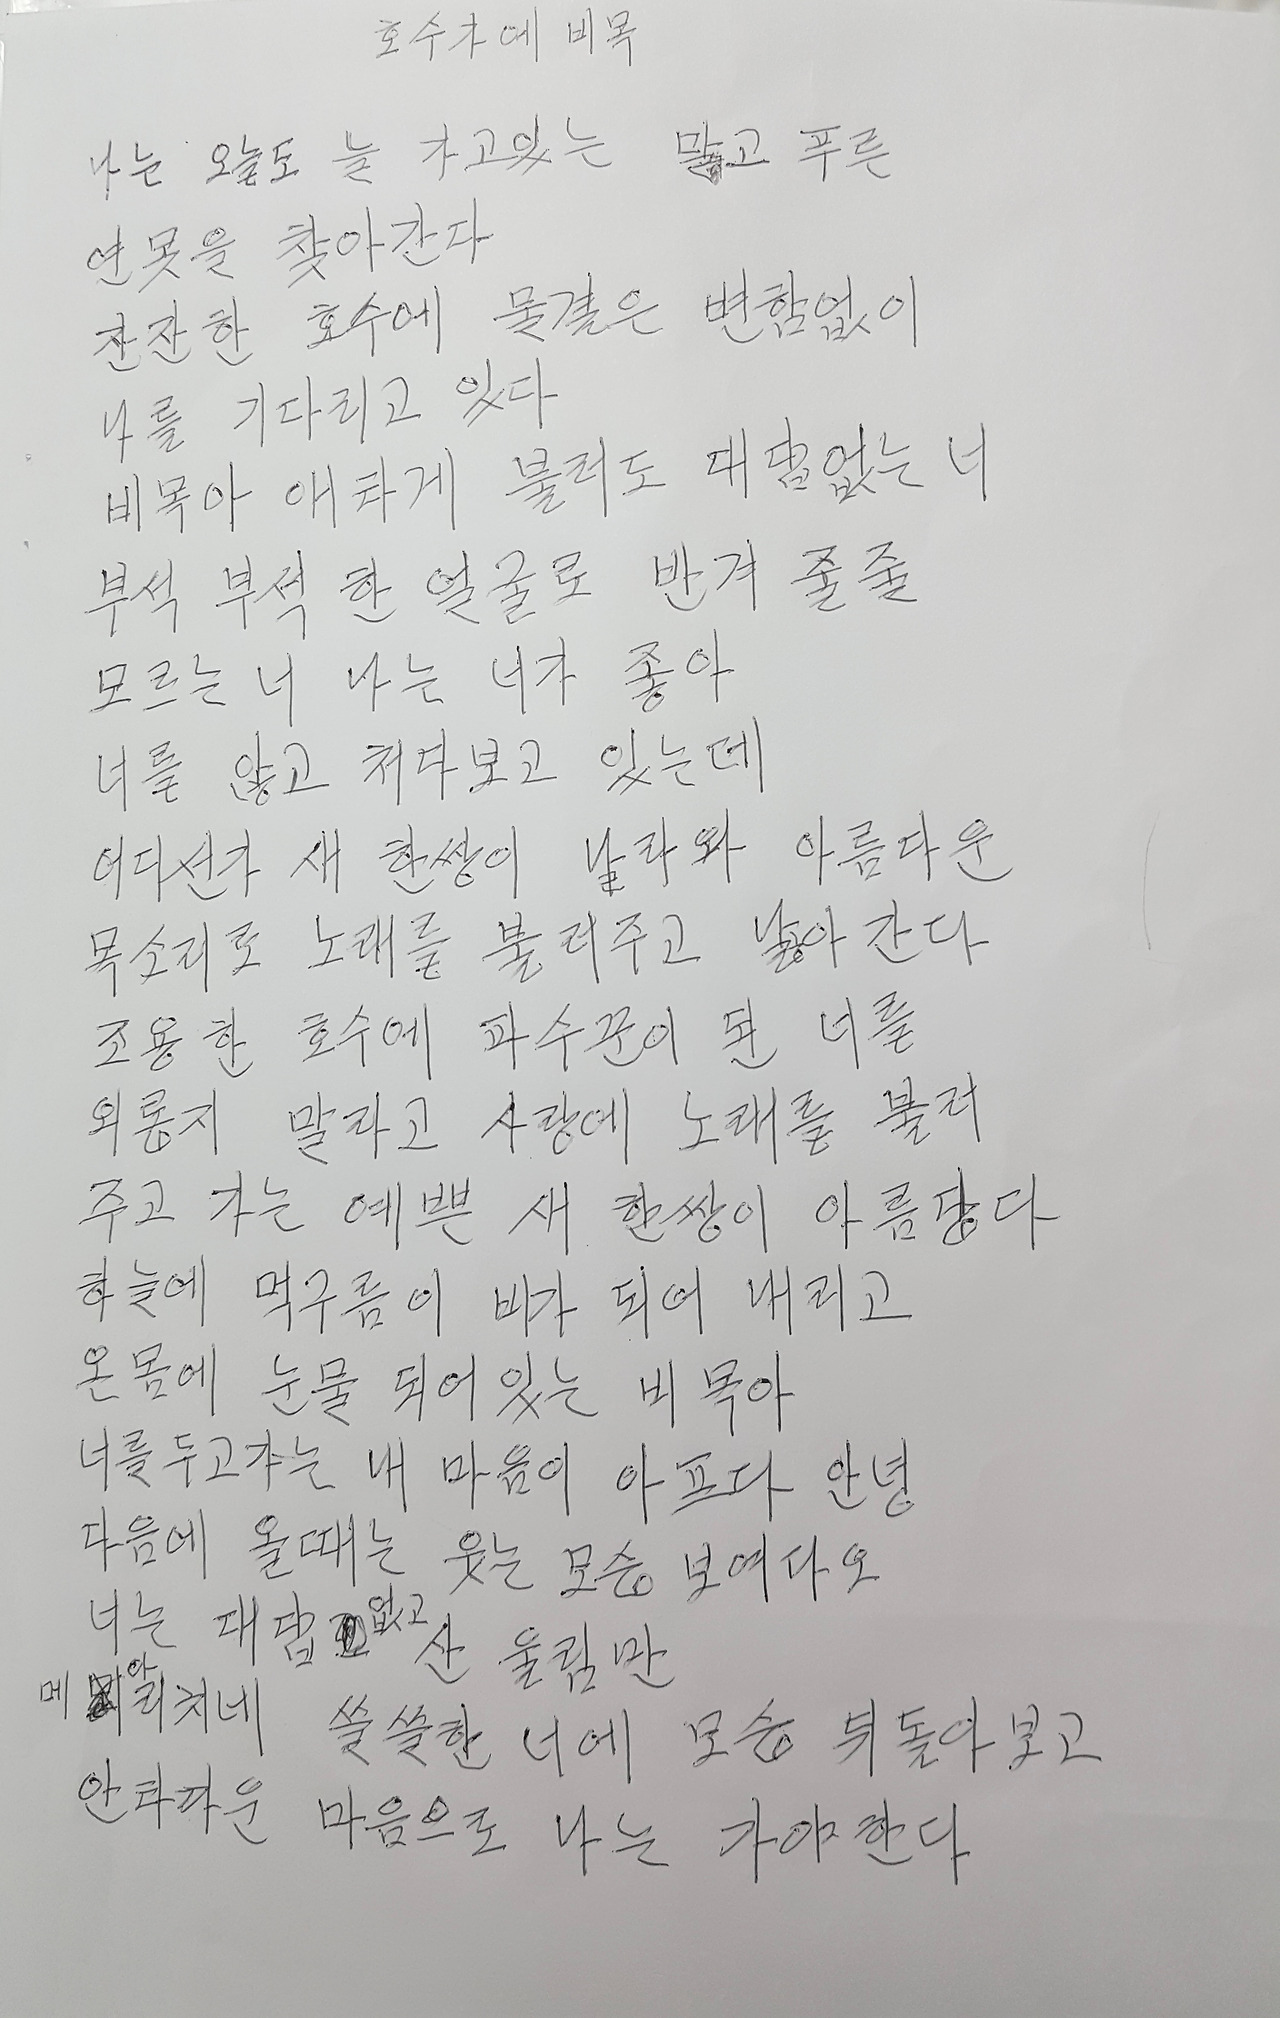 호수가에 비목
나는 오늘도 늘 가고있는 맑고 푸른
연못을 찾아간다
잔잔한 호수에 물결은 변함없이
나를 기다리고 있다
비목아 애타게 불러도 대답없는 너
부석 부석 한 얼굴로 반겨 줄줄
모르는 너 나는 너가 좋아
너를 않고 처다보고 있는데
어디선가 새 한쌍이 날라와 아름다운
목소리로 노래를 불러주고 날아간다
조용한 호수에 파수꾼이 된 너를
외롭지 말라고 사랑에 노래를 불러
주고 가는 예쁜 새 한쌍이 아름답다
하늘에 먹구름이 비가 되어 내리고
온몸에 눈물 되어있는 비목아
너를두고가는 내 마음이 아프다 안녕
다음에 올때는 웃는 모습 보여다오
너는 대답없고 산 울림만
메아리치네 쓸쓸한 너에 모습 뒤돌아보고
안타까운 마음으로 나는 가야한다